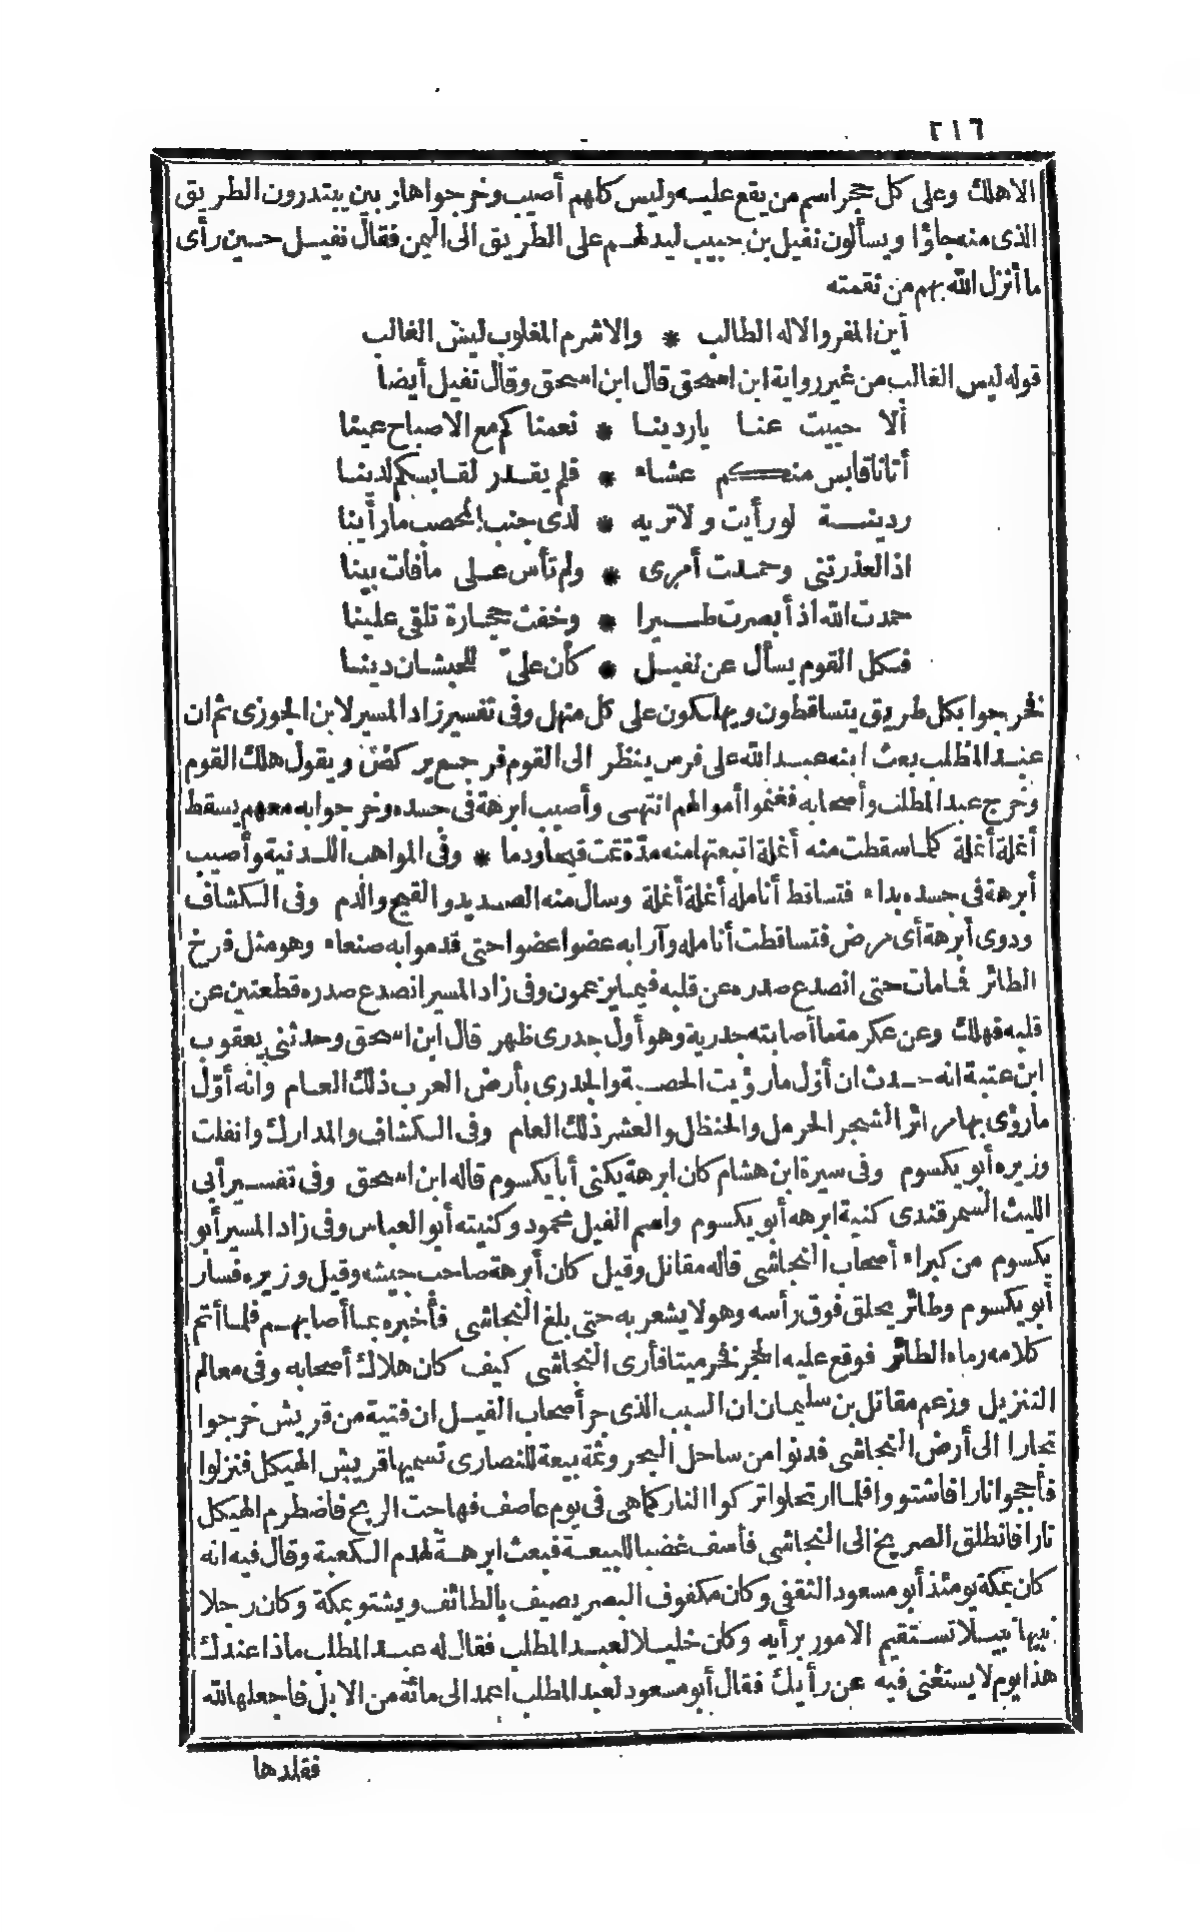 ٢١٦
الا هلك وعلى كل حجر اسم من يقع عليه وليس كلهم أصيب وخرجوا هاربين يبتدرون الطريق
الذى منه جاؤا ويسألون نفيل بن حبيب ليدلهم على الطريق الى اليمن فقال نفيل حين رأى
ما أنزل الله بهم من نقمته
أين المفر والاله الطالب * والاشرم المغلوب ليس الغالب
قوله ليس الغالب من غير رواية ابن اسحق قال ابن اسحق وقال نفيل أيضا
ألا حييت عنا ياردينا * نعمنا كم مع الاصباح عينا
أتانا قابس منكم عشاء * فلم يقدر لقابسكم لدينا
ردينة لو رأيت ولا تريه * لدى جنب المحصب ما رأينا
اذا لعذرتنى وحمدت أمرى * ولم تأس على ما فات بينا
حمدت الله اذ أبصرت طيرا * وخفت حجارة تلقى علينا
فكل القوم يسأل عن نفيل * كأن علىّ للحبشان دينا
فخرجوا بكل طريق يتساقطون ويهلكون على كل منهل وفى تفسير زاد المسير لابن الجوزى ثم ان
عبد المطلب بعث ابنه عبد الله على فرس ينظر الى القوم فرجع يركض ويقول هلك القوم
وخرج عبد المطلب وأصحابه فغنموا أموالهم انتهى وأصيب ابرهة فى جسده وخرجوا به معهم يسقط
أنملة أنملة كلما سقطت منه أنملة اتبعتها منه مدّة تمت قيحا ودما * وفى المواهب اللدنية وأصيب
أبرهة فى جسده بداء فتساقط أنامله أنملة أنملة وسال منه الصديد والقيح والدم وفى الكشاف
ودوى أبرهة أى مرض فتساقطت أنامله وآرابه عضوا عضوا حتى قدموا به صنعاء وهو مثل فرخ
الطائر فمامات حتى انصدع صدره عن قلبه فيما يزعمون وفى زاد المسير انصدع صدره قطعتين عن
قلبه فهلك وعن عكرمة ما أصابته جدرية وهو أول جدرى ظهر قال ابن اسحق وحدثنى يعقوب
ابن عتبة انه حدث ان أوّل ما رؤيت الحصبة والجدرى بأرض العرب ذلك العام وانه أوّل
ما رؤى بها مرائر الشجر الحرمل والحنظل والعشر ذلك العام وفى الكشاف والمدارك وانفلت
وزيره أبو يكسوم وفى سيرة ابن هشام كان ابرهة يكنى أبا يكسوم قاله ابن اسحق وفى تفسير أبى
الليث السمرقندى كنية ابرهه أبو يكسوم واسم الفيل محمود وكنيته أبو العباس وفى زاد المسير أبو
يكسوم من كبراء أصحاب النجاشى قاله مقاتل وقيل كان أبرهة صاحب جيشه وقيل وزيره فسار
أبو يكسوم وطائر يحلق فوق رأسه وهو لا يشعر به حتى بلغ النجاشى فأخبره بما أصابهم فلما أتم
كلامه رماه الطائر فوقع عليه الحجر فخر ميتا فأرى النجاشى كيف كان هلاك أصحابه وفى معالم
التنزيل وزعم مقاتل بن سليمان ان السبب الذى جر أصحاب الفيل ان فتية من قريش خرجوا
تجارا الى أرض النجاشى فدنوا من ساحل البحر وثمة بيعة للنصارى تسميها قريش الهيكل فنزلوا
فأججوا نارا فاشتووا فلما ارتحلوا تركوا النار كما هى فى يوم عاصف فهاحت الريح فاضطرم الهيكل
نارا فانطلق الصريخ الى النجاشى فأسف غضبا للبيعة فبعث ابرهة لهدم الكعبة وقال فيه انه
كان بمكة يومئذ أبو مسعود الثقفى وكان مكفوف البصر يصيف بالطائف ويشتو بمكة وكان رجلا
نبيها نبيلا تستقيم الامور برأيه وكان خليلا لعبد المطلب فقال له عبد المطلب ماذا عندك
هذا يوم لا يستغنى فيه عن رأيك فقال أبو مسعود لعبد المطلب اعمد الى مائة من الابل فاجعلها لله
فقلدها